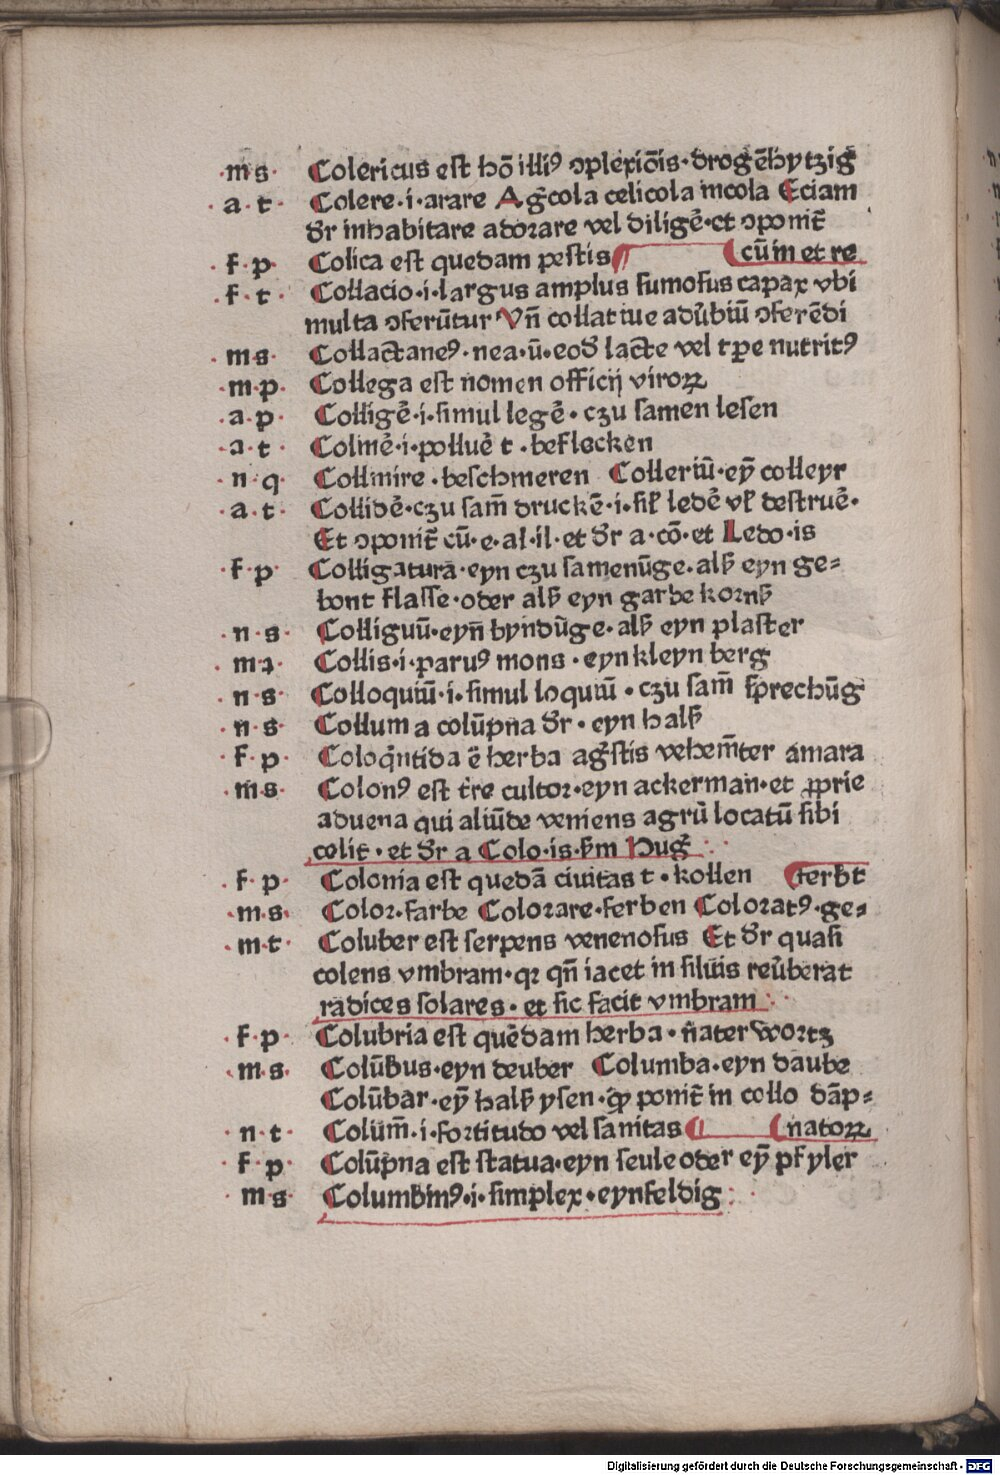 ·m s· Colericus est hō illiꝰ ↄplexiōis·drogēhytzig
·a·t· Colere·i·arare Agͥcola celicola incola Eciam
dr̄ inhabitare adorare vel diligē·et ↄponit̄
·f·p· Colica est quedam pestis ¶ cūin et re
·f·t· Collacio·i·largus amplus fumosus capax vbi
multa ↄferūtur Vn̄ collatiue adūbiū ↄferēdi
·ms· Collactaneꝰ·nea·ū·eod̄ lacte vel tꝑe nutritꝰ
·m·p· Collega est nomen officij viroꝝ
·a·p· Colligē·i·simul legē·czu samen lesen
·a·t· Colinē·i·polluē t·beflecken
·n·q· Collinire·beschmeren Colleriū·eȳ colleyr
·a·t· Collidē·czu sam̄ druckē·i·sil̄ ledē vl̄ destruē·
Et ↄponit̄ cū·e·al·il·et dr̄ a·cō·et Ledo·is
·f·p· Colligatura·eyn czu samenūge·alß eyn ge⸗
bont flasse·oder alß eyn garbe kornß
·n·s· Colliguū·eyn̄ byndūge·alß eyn plaster
·mꝛ· Collis·i·paruꝰ mons·eyn kleyn berg
·n·s· Colloquiū·i·simul loquiū·czu sam̄ sprechūg
·n·s· Collum a colūpna dr̄·eyn halß
·f·p· Coloqn̄tida ē herba agr̄stis vehem̄ter amara
·ms· Colonꝰ est tr̄e cultor·eyn ackerman·et ꝓprie
aduena qui aliūde veniens agrū locatū sibi
colit·et dr̄ a Colo·is·ßm Huḡ
·f·p· Colonia est quedā ciuitas t·kollen ferbt
·m s· Color·farbe Colorare·ferben Coloratꝰ·ge⸗
·m t· Coluber est serpens venenosus Et dr̄ quasi
colens vmbram·qꝛ qn̄ iacet in siluis reūberat
radices solares·et sic facit vmbram
·f·p· Colubria est quēdam herba·n̄ater wortz
·m s· Colūbus·eyn deuber Columba·eyn daube
Colūbar·eȳ halß ysen·ꝙ ponit̄ in collo dāp⸗
·n·t· Colum̄·i·fortitudo vel sanitas ¶ natoꝝ
·f·p· Colūpna est statua·eyn seule oder eȳ pfyler
·m s· Columbinꝰ·i·simplex·eynfeldig
Digitalisierung gefördert durch die Deutsche Forschungsgemeinschaft - DFG